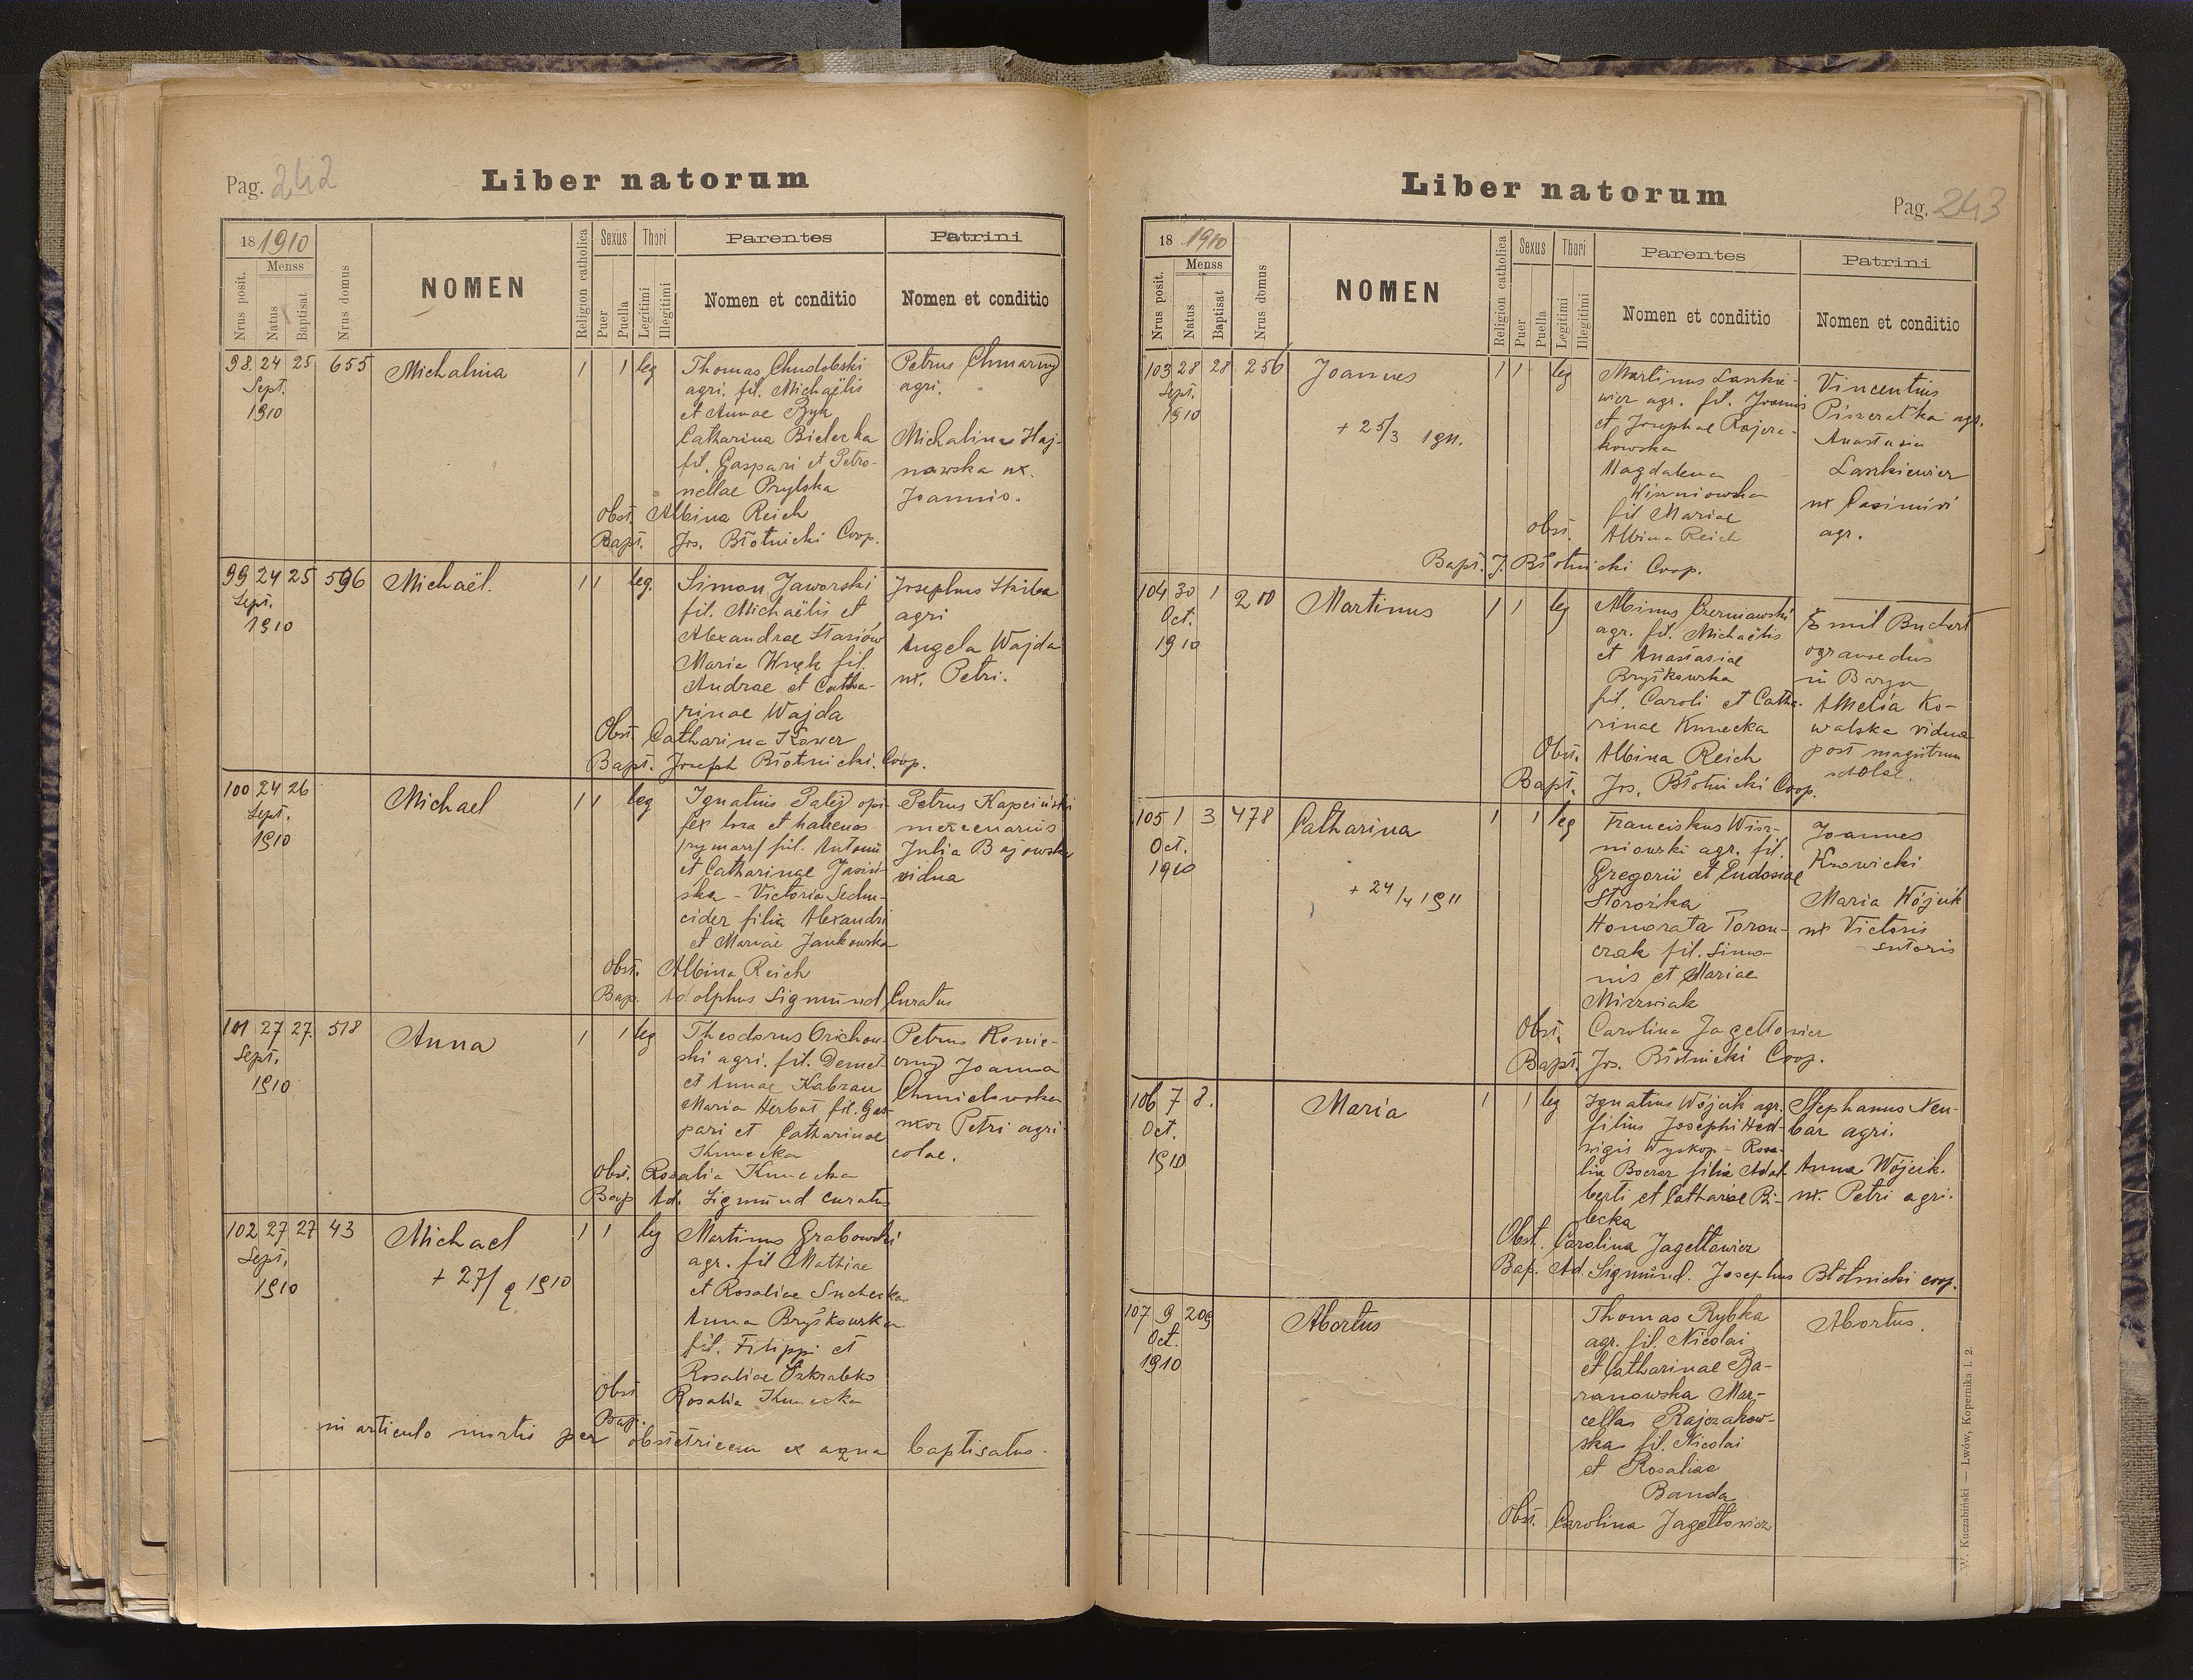 Pag. 242
Liber natorum
18 1910
Menss
Nrus posit.
Natus
Baptisat
Nrus domus
NOMEN
Religion catholica
Sexus
Puer
Puella
Thori
Legitimi
Illegitimi
Parentes
Nomen et conditio
Patrini
Nomen et conditio
98. 24 25 655 Michalina 1 1 leg
Sept.
1910
Thomas Chudobski
agri. fil. Michaëlis
et Annae Byk
Catharina Bielecka
fil. Gaspari et Petro-
nellae Prylska
Petrus Chmarny
agri.
Michalina Haj-
nowska ux.
Joannis.
Obst. Albina Reich
Bapt. Jos. Błotnicki Coop.
99 24 25 596 Michaël. 1 1 leg.
Sept.
1910
Simon Jaworski
fil. Michaëlis et
Alexandrae Stasiów
Maria Kruk fil.
Andrae et Catha-
rinae Wajda
Josephus Skiba
agri
Angela Wajda
ux. Petri.
Obst. Catharina Kower
Bapt. Joseph Błotnicki. Coop.
100 24 26 Michael 1 1 leg
Sept.
1910
Ignatius Palej opi-
fex lora et habenas
fil. Antonii
et Catharinae Jasiń-
ska - Victoria Schn-
eider filia Alexandri
et Mariae Jankowska
Petrus Kapciński
mercenarius
Julia Bajowska
vidua
Obst. Albina Reich
Bap. Adolphus Sigmünd Curatus
101 27 27. 518 Anna 1 1 leg
Sept.
1910
Theodorus Orichow-
ski agri. fil. Demet-
et Annae Kabzan
Maria Herbat fil. Gas-
pari et Catharinae
Kunecka
Petrus Konie-
czny Joanna
Chmielowska
uxor Petri agri-
colae.
Obst. Rosalia Kunecka
Bap Ad. Sigmünd curatus
102 27 27 43 Michael 1 1 leg
Sept.
1910
+ 27/9 1910
Martinus Grabowski
agr. fil Mathiae
et Rosaliae Suchecka
Anna Bryśkowska
fil. Filippi et
Rosaliae Szkrabko
Obst. Rosalia Kunecka
Bapt.
in articulo mortis per obstetricem ex aqua baptisatus.
Liber natorum
Pag. 243
18 1910
Menss
Nrus posit.
Natus
Baptisat
Nrus domus
NOMEN
Religion catholica
Sexus
Puer
Puella
Thori
Legitimi
Illegitimi
Parentes
Nomen et conditio
Patrini
Nomen et conditio
103 28 28 256 Joannes 1 1 leg
Sept.
1910
+ 25/3 1911.
Martinus Laszkie-
wicz agr. fil. Joannis
et Josephae Rajcza-
kowska
Magdalena
Wiszniowska
fil Mariae
Vincentius
Piszczatka agr.
Anastasia
Laszkiewicz
ux Casimiri
agr.
obst. Albina Reich
Bapt. J. Błotnicki Coop.
104 30 1 200 Martinus 1 1 leg
Oct.
1910
Albinus Czerniawski
agr. fil. Michaëlis
et Anastasiae
Bryśkowska
fil. Caroli et Catha-
rinae Kunecka
Emil Buchert
in Barysz
Amelia Ko-
walska vidua
post magistrum
scholae.
Obst. Albina Reich
Bapt. Jos. Błotnicki Coop.
105 1 3 478 Catharina 1 1 leg
Oct.
1910
+ 24/4 1911
Franciskus Wisz-
niowski agr. fil.
Gregorii et Eudosiae
Storożka
Honorata Toron-
czak fil. Simo-
nis et Mariae
Mizzwiak
Joannes
Krowicki
Maria Wójcik
ux Victoris
sutoris
Obst. Carolina Jagełłowicz
Bapt. Jos. Błotnicki Coop.
106 7 8. Maria 1 1 leg
Oct.
1910
Ignatius Wójcik agr.
filius Josephi Hed-
wigis Wyskop - Rosa-
lia Boczar filia Adal-
berti et Catharinae Bi-
lecka
Stephanus Neu-
bar agri.
Anna Wójcik.
ux. Petri agri.
Obst. Carolina Jagełłowicz
Bap. Ad. Sigmünd. Josephus Błotnicki coop.
107 9 209 Abortus
Oct.
1910
Thomas Rybka
agr. fil. Nicolai
et Catharinae Ba-
ranowska Mar-
cella Rajczakow-
ska fil. Nicolai
et Rosaliae
Banda
Abortus.
Obst. Carolina Jagełłowicz
W. Kuczabiński — Lwów, Kopernika l. 2.